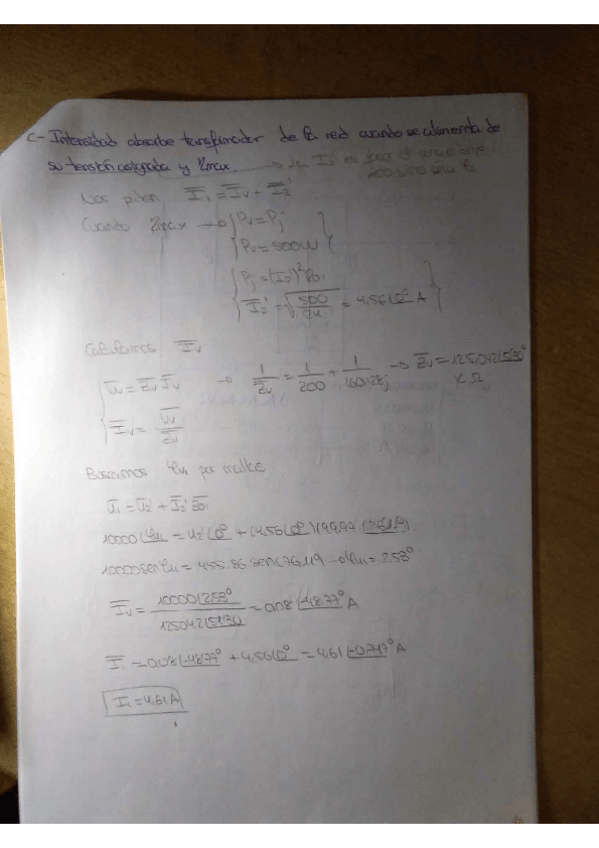 C- Intensidad absorbe transformador de la red cuando se alimenta de
su tensión asignada y ηmax. → la I2' es
Nos piden I̅1 = I̅v + I̅2'
Cuando ηmax → { Pv = Pj
Pv = 500W }
{ Pj = (I2')² R01
I̅2' = √(500/24) = 4.56∠0° A }
Calculamos I̅v
{ U̅1 = Z̅v I̅v → 1/Z̅v = 1/200 + 1/160.128j → Z̅v = 125.042∠51.30° KΩ
I̅v = U̅1/Z̅v
Buscamos φu1 por mallas
U̅1 = U̅2' + I̅2' Z̅01
10000∠φu1 = U2'∠0° + (4.56∠0°)(99.97∠76.11°)
10000 sen φu1 = 455.86 sen(76.11) → φu1 = 2.53°
I̅v = 10000∠2.53° / 125042∠51.30 = 0.08∠-48.77° A
I̅1 = 0.08∠-48.77° + 4.56∠0° = 4.61∠-0.747° A
I1 = 4.61A